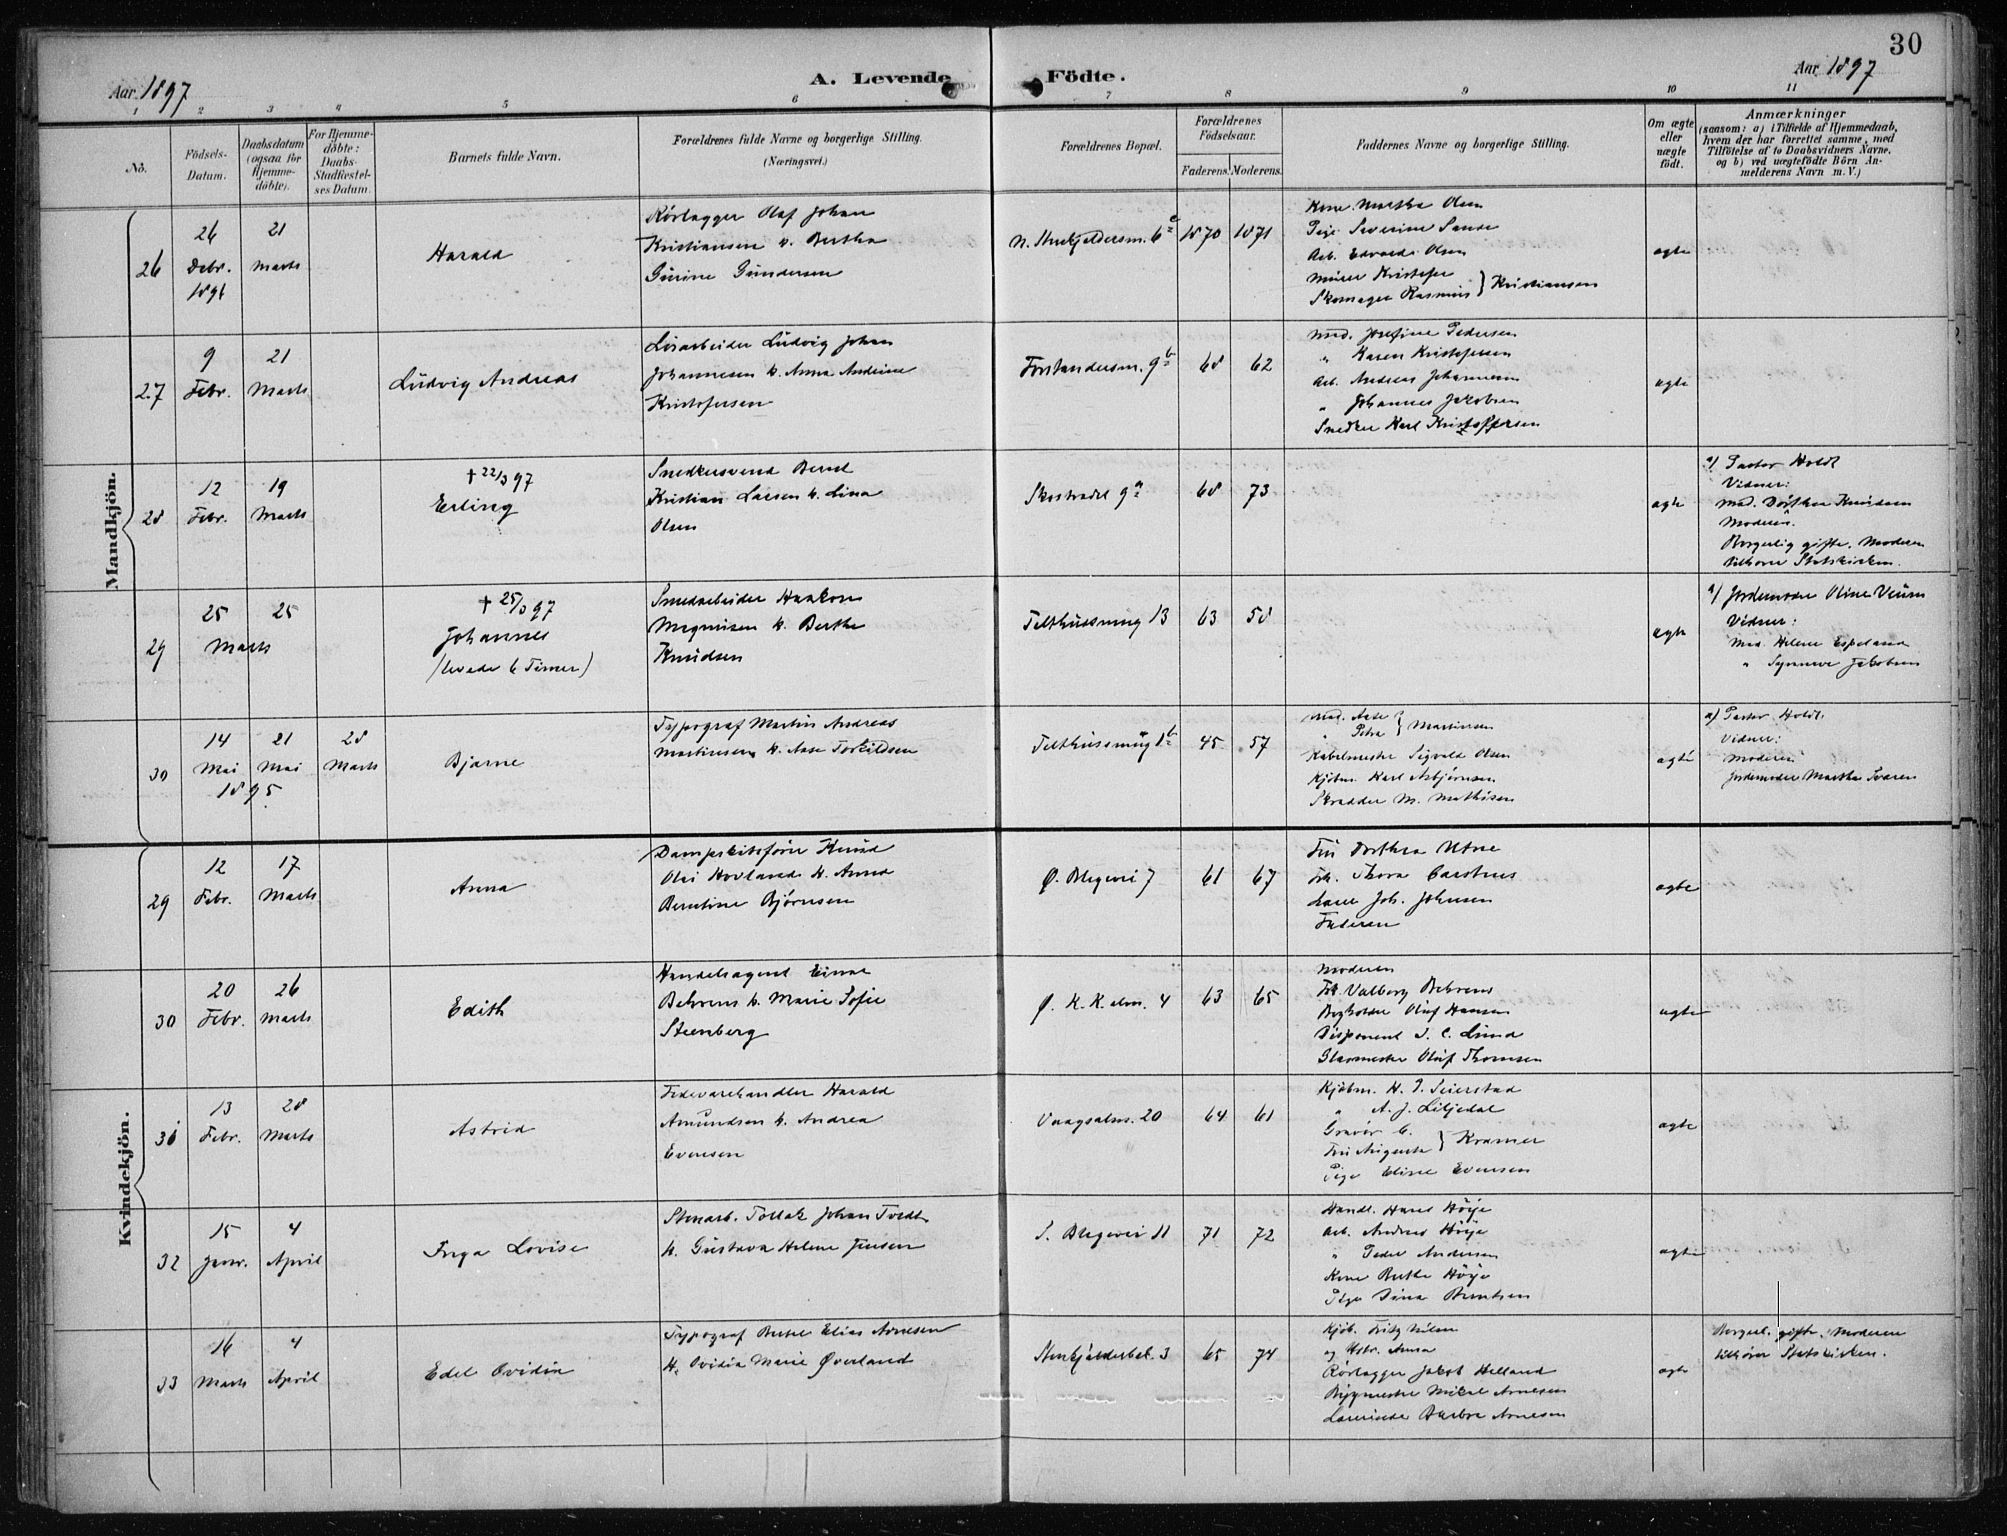 30
Aar 1897
A. Levende Födte.
Aar 1897
1 2 3 4 5 6 7 8 9 10 11
No.
Födsels-Datum.
Daabsdatum (ogsaa for Hjemme-döbte).
For Hjemme-döbte: Daabs-Stadfæstel-ses Datum.
Barnets fulde Navn.
Forældrenes fulde Navne og borgerlige Stilling.
(Næringsvei.)
Forældrenes Bopæl.
Forældrenes Födselsaar.
Faderens. Moderens.
Faddernes Navne og borgerlige Stilling.
Om ægte eller uægte födt.
Anmærkninger
(saasom: a) i Tilfælde af Hjemmedaab,
hvem der har forrettet samme, med
Tilföielse af to Daabsvidners Navne,
og b) ved uægtefödte Börn An-
melderens Navn m. V.)
Mandkjön.
26
26 Debr. 1896
21 Marts
Harald
Rørlægger Olaf Johan
Kristiansen & Bertha
Gurine Gundersen
1870 1871
Kone Martha Olsen
Pige Severine Sande
Arb. Edvard Olsen
Murer Kristofer
Skomager Rasmus } Kristiansen
ægte
27
9 Febr.
21 Marts
Ludvig Andreas
Løsarbeider Ludvig Johan
Johannesen & Anna Andrine
Kristofersen
Forstandersm. 9b
68 62
Mad. Josefine Pedersen
" Karen Kristofersen
Arb. Andreas Johannesen
" Johannes Jakobsen
Snedker Karl Kristoffersen
ægte
28
12 Febr.
19 Marts
+ 22/3 97
Erling
Snedkersvend Bernt
Kristian Larsen & Lina
Olsen
Skostrædet 9a
68 73
ægte
a) Pastor Holdt
Vidner:
Mad. Dorthea Knudsen
Moderen.
Borgerlig gifte. Moderen
tilhører Statskirken.
29
25 25
Marts
+ 25/3 97
Johannes
(levede 6 Timer)
Smedarbeider Haakon
Magnusen & Berthe
Knudsen
Telthussmug 13
63 58
ægte
a) Jordemoder Oline Veum
Vidner:
Mad. Helene Espeland
" Synneve Jakobsen
30
14 Mai 1895
21 Mai
28 Marts
Bjarne
Typograf Martin Andreas
Martinsen & Aase Torkildsen
Telthussmug 1b
45 57
Mad. Aase
" Petra } Martinsen
Kabelmester Sigvald Olsen
Kjøbm. Karl Asbjørnsen
Skrædder M. Mathisen
ægte
a) Pastor Holdt.
Vidner:
Moderen
Jordemoder Martha Svaren
Kvindekjön.
29
12 Febr.
17 Marts
Anna
Dampskibsfører Knud
Olai Hovland & Anna
Berntine Bjørnsen
Ø. Blegevei 7
61 67
Fru Dorthea Utne
Frk. Thora Carstens
Joh. Johnsen
Faderen
ægte
30
20 Febr.
26 Marts
Edith
Handelsagent Einar
Behrens & Marie Sofie
Steenberg
Ø. K. Kalm. 4
63 65
Moderen
Frk. Valborg Behrens
Bogholder Oluf Hansen
Disponent J. C. Lund
Glasmester Oluf Thomsen
ægte
31
13 Febr.
28 Marts
Astrid
Fedevarehandler Harald
Amundsen & Andrea
Evensen
Vaagsalm. 20
64 61
Kjøbm. H. J. Seierstad
" A. J. Liljedal
Gravør C.
Fru Augusta } Kramer
Pige Eline Evensen
ægte
32
15 Janr.
4 April
Inga Lovise
Stenarb. Tollak Johan Tvedt
& Gustava Helene Jensen
S. Blegevei 11
71 72
Handl. Hans Høije
Arb. Andreas Høije
" Peder Andersen
Kone Berthe Høije
Pige Dina Berntsen
ægte
33
16 Marts
4 April
Edel Ovidia
Typograf Bertel Elias Arnesen
& Ovidia Marie Øverland
3
65 74
Kjøb. Fritz Nilsen
og Hstr. Anna
Rørlægger Jakob Helland
Bygmester Mikal Arnesen
Lærerinde Barbra Arnesen
ægte
Borgerl. gifte. Moderen
tilhører Statskirken.